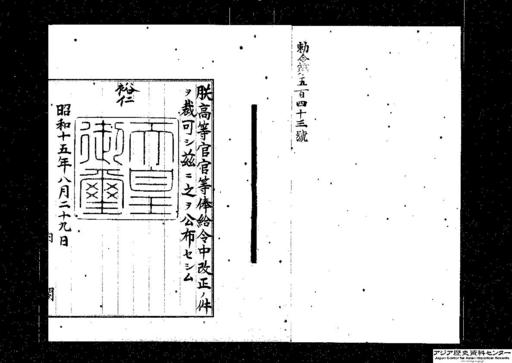 勅令第五百四十三號
朕高等官官等俸給令中改正ノ件
ヲ裁可シ茲ニ之ヲ公布セシム
裕仁
天皇
御璽
昭和十五年八月二十九日
アジア歴史資料センター
Japan Center for Asian Historical Records